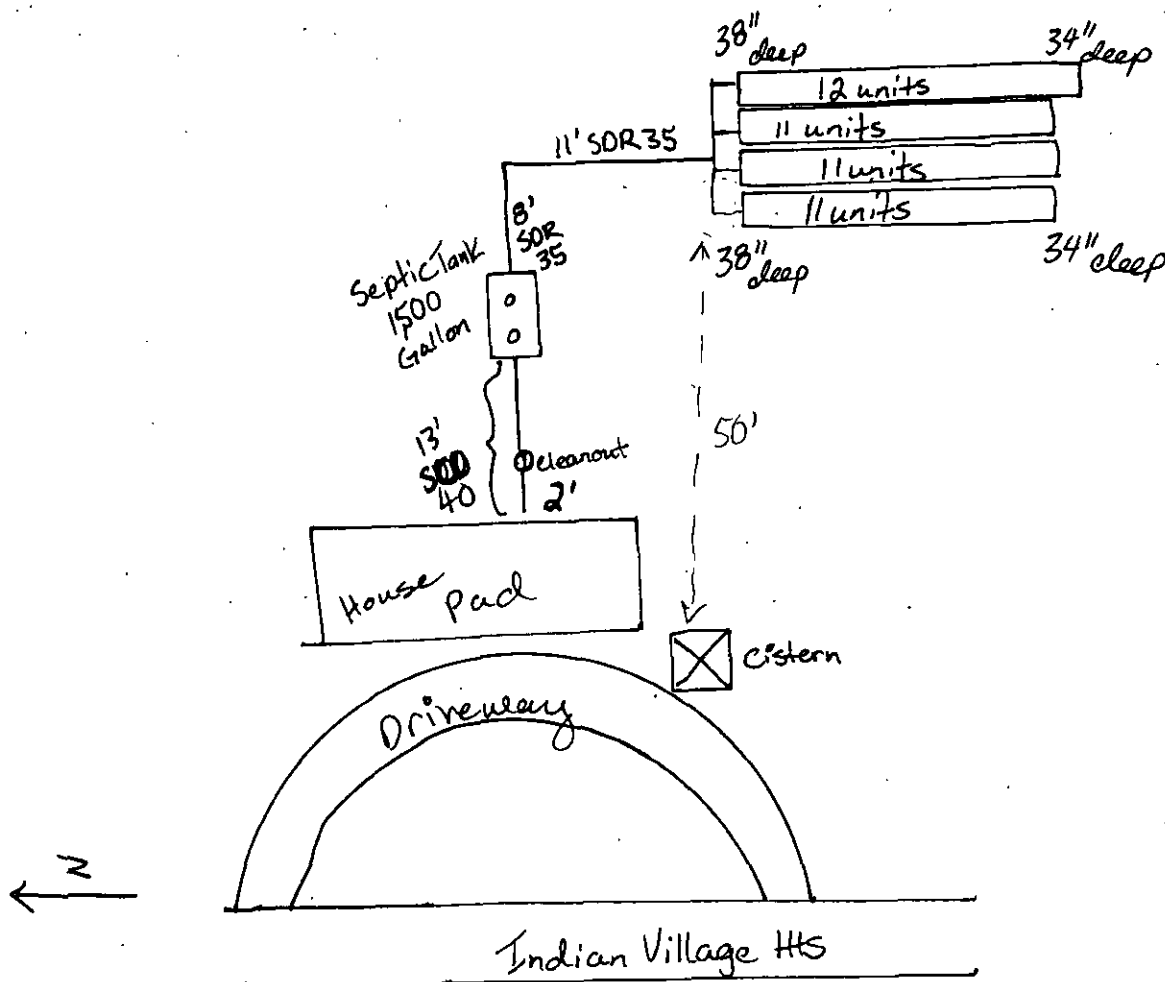 38"
deep
34"
deep
12 units
11 units
11 units
11 units
11' SDR 35
8'
SDR
35
38"
deep
34"
deep
Septic Tank
1500
Gallon
13'
40
cleanout
2'
50'
House Pad
Cistern
Driveway
N
Indian Village Hts